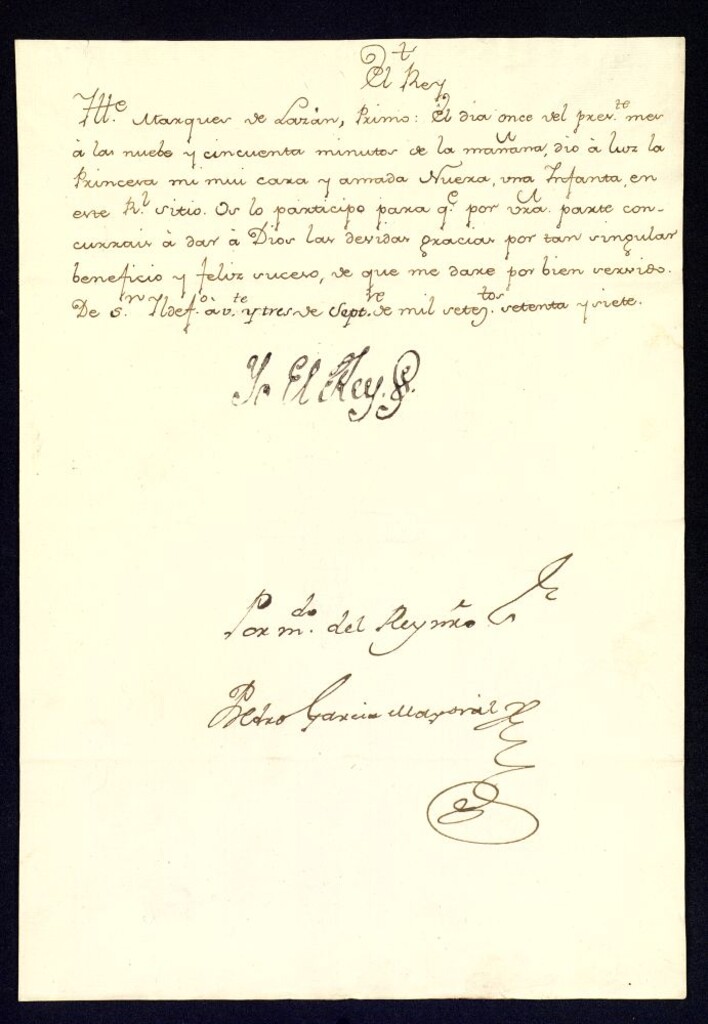 El Rey
Ille. Marques de Lazàn, Primo: El dia once del preste. mes
à las nuebe y cincuenta minutos de la mañana, diò à luz la
Princesa mi mui cara y amada Nuera, vna Infanta, en
este Rl. sitio. Os lo participo para qe. por vra. parte con-
currais à dar à Dios las devidas gracias por tan singular
beneficio y feliz suceso, de que me darè por bien servido.
De Sn. Yldefo. à vte. y tres de Septre. de mil setezstos. setenta y siete.
Yo El Rey.
Por mdo. del Rey nro Sr
Pedro Garcia Mayoral